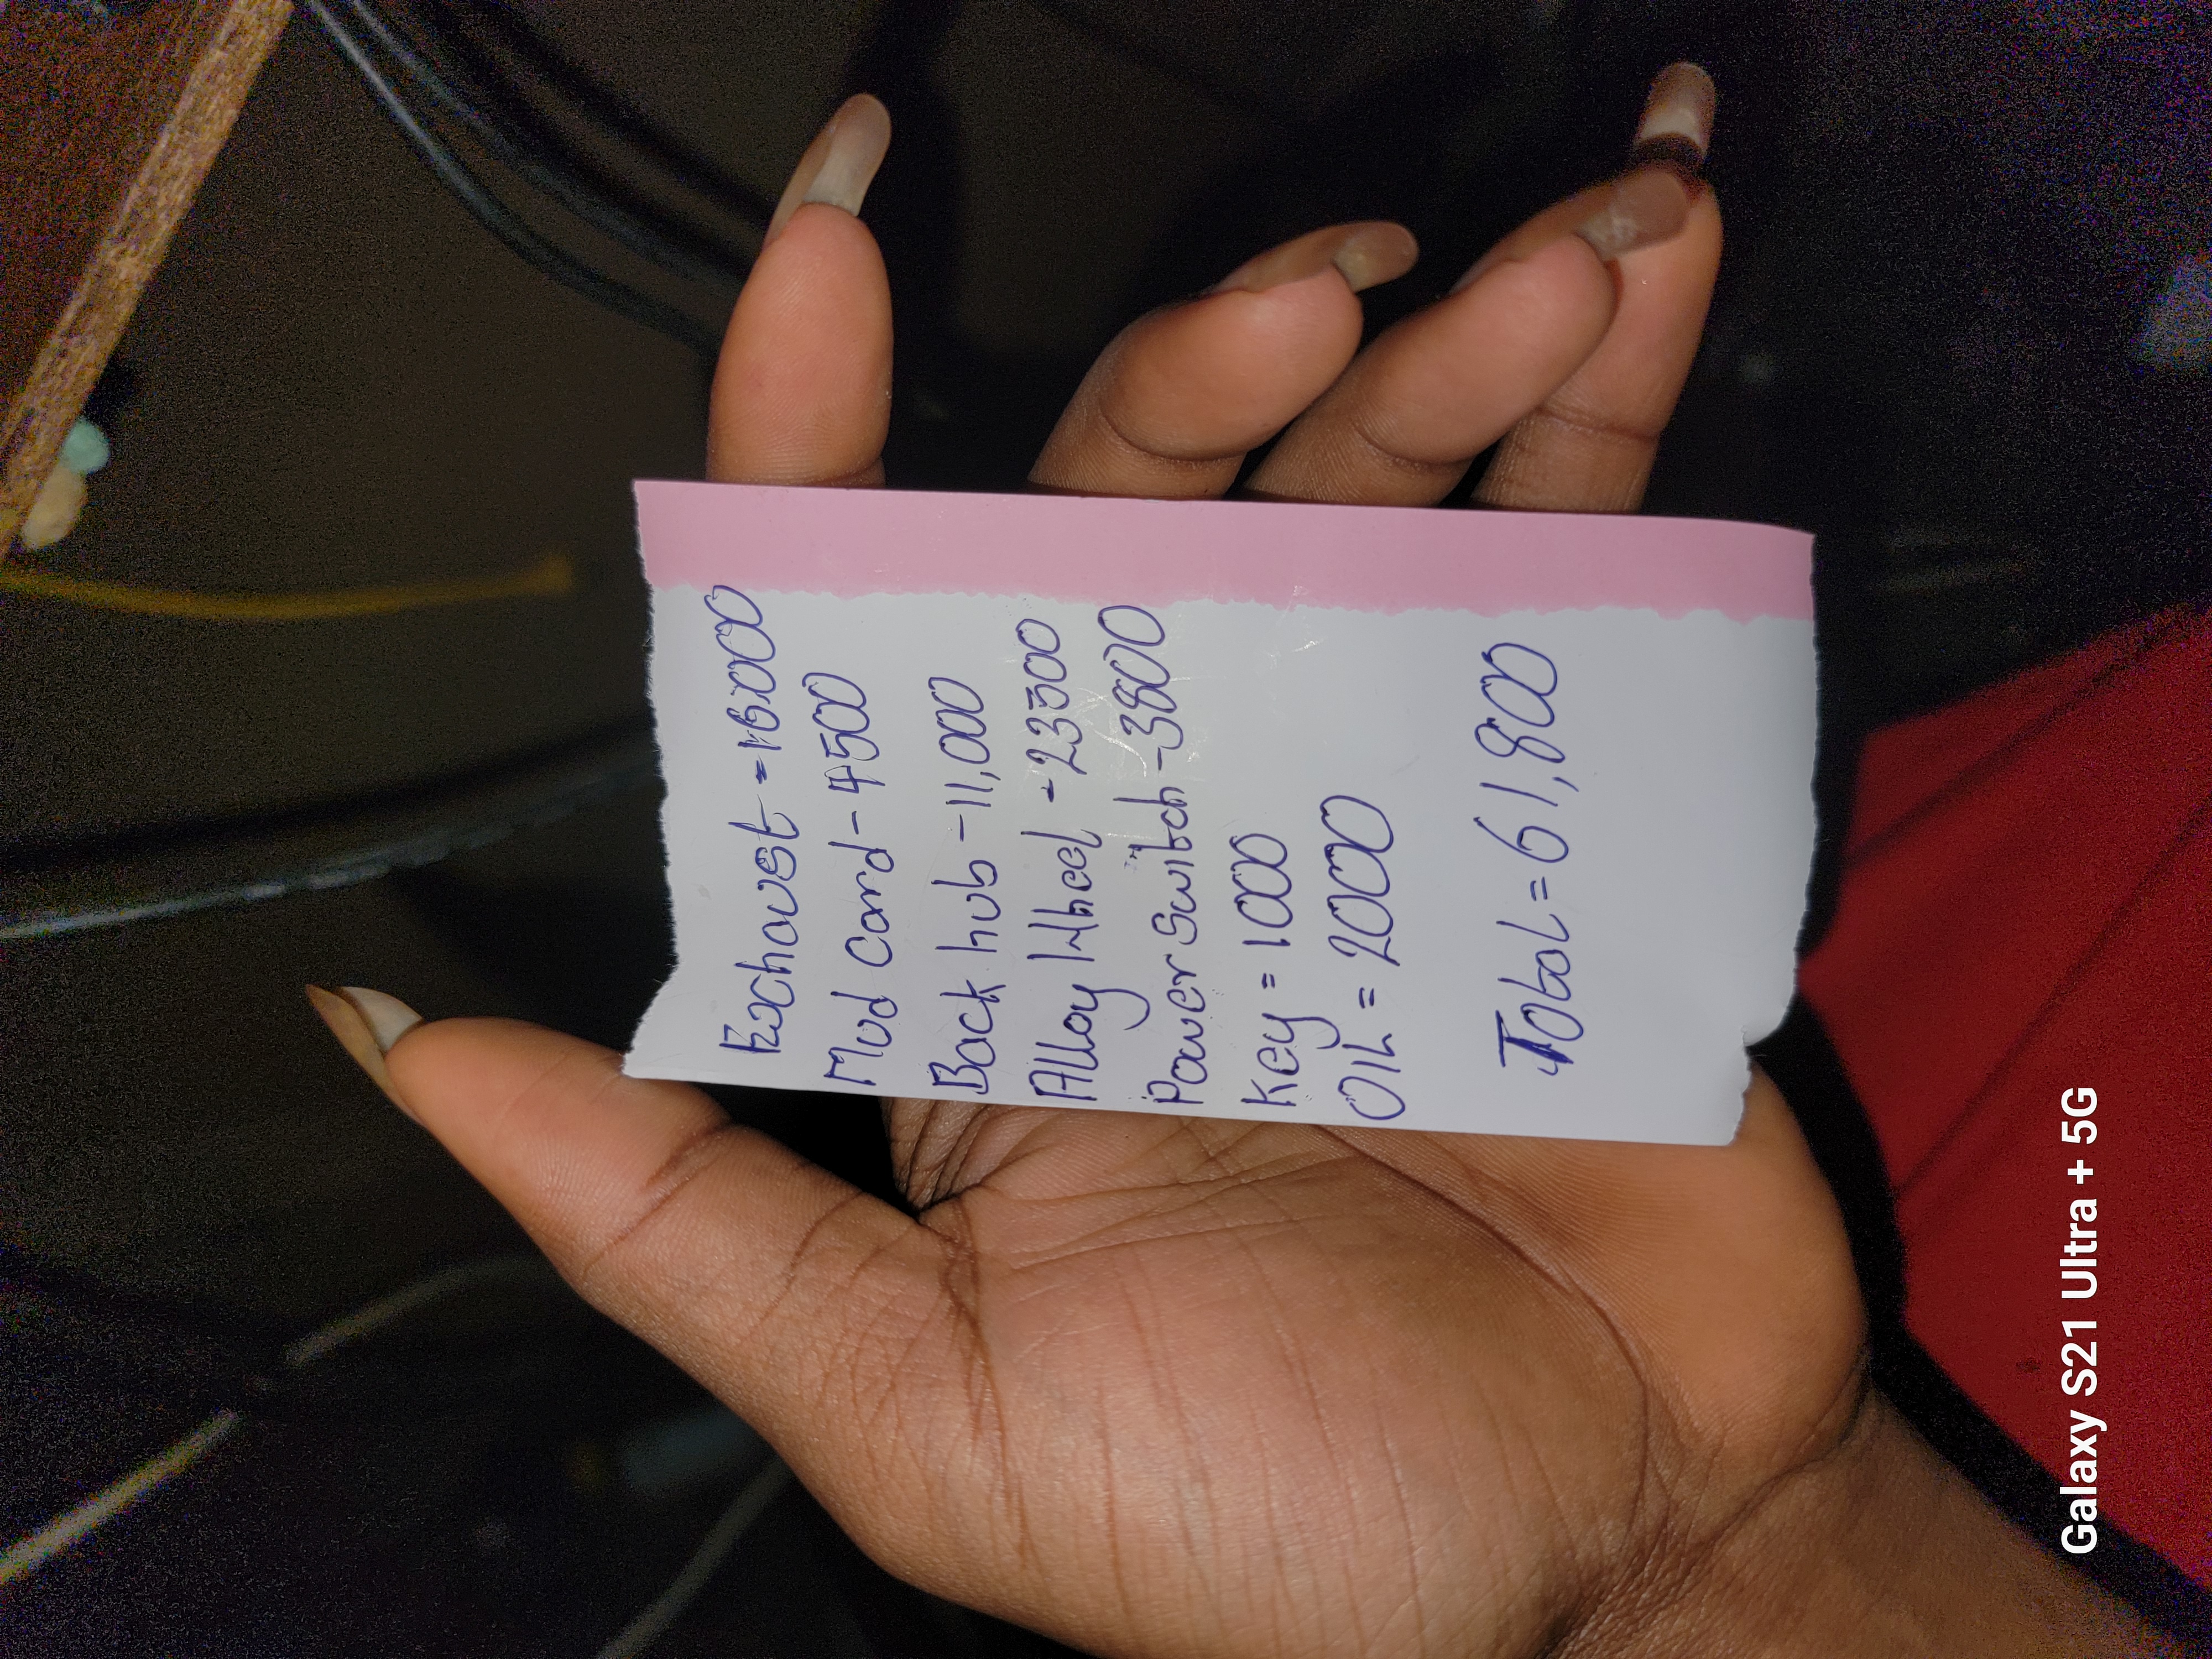 Exchaust -16000
Mud Card - 4500
Back hub - 11,000
Alloy Wheel - 23500
Power Switch - 3800
Key = 1000
OIL = 2000
Total = 61,800
Galaxy S21 Ultra + 5G